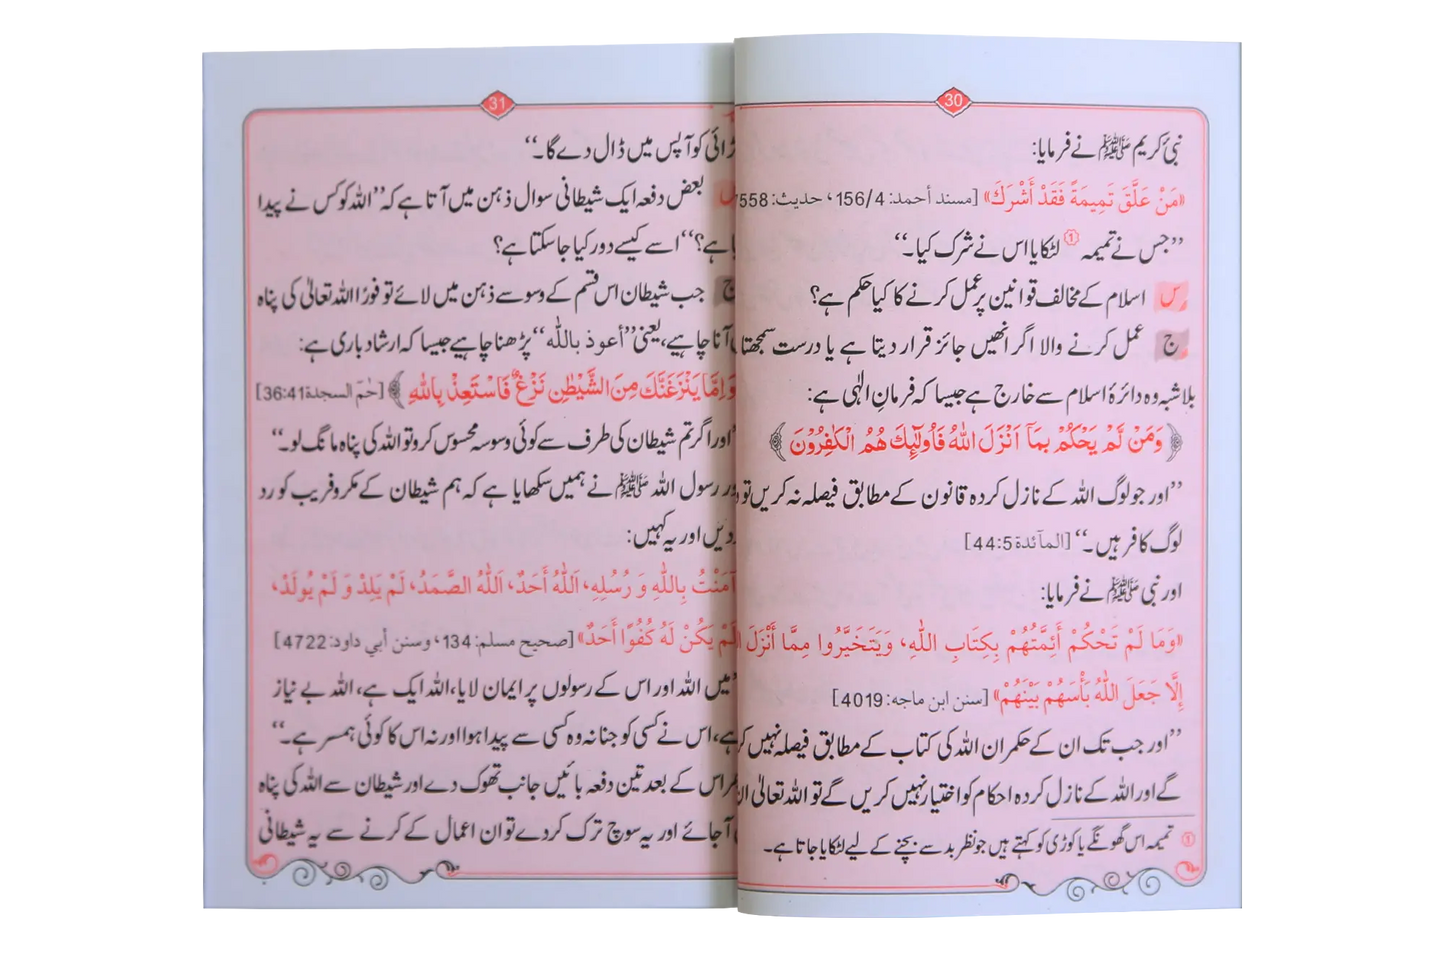 30
نبیٔ کریم ﷺ نے فرمایا:
«مَنْ عَلَّقَ تَمِيمَةً فَقَدْ أَشْرَكَ» [مسند أحمد: 156/4، حديث: 558
’’جس نے تمیمہ ① لٹکایا اس نے شرک کیا۔‘‘
س اسلام کے مخالف قوانین پر عمل کرنے کا کیا حکم ہے؟
ج عمل کرنے والا اگر انھیں جائز قرار دیتا ہے یا درست سمجھتا
بلاشبہ وہ دائرۂ اسلام سے خارج ہے جیسا کہ فرمانِ الٰہی ہے:
﴿وَمَنْ لَّمْ يَحْكُمْ بِمَآ اَنْزَلَ اللّٰهُ فَاُولٰٓئِكَ هُمُ الْكٰفِرُوْنَ﴾
’’اور جو لوگ اللہ کے نازل کردہ قانون کے مطابق فیصلہ نہ کریں تو
لوگ کافر ہیں۔‘‘ [المآئدة 44:5]
اور نبی ﷺ نے فرمایا:
«وَمَا لَمْ تَحْكُمْ أَئِمَّتُهُمْ بِكِتَابِ اللّٰهِ، وَيَتَخَيَّرُوا مِمَّا أَنْزَلَ
إِلَّا جَعَلَ اللّٰهُ بَأْسَهُمْ بَيْنَهُمْ» [سنن ابن ماجه: 4019]
’’اور جب تک ان کے حکمران اللہ کی کتاب کے مطابق فیصلہ نہیں
گے اور اللہ کے نازل کردہ احکام کو اختیار نہیں کریں گے تو اللہ تعالیٰ ان
① تمیمہ اس گھونگے یا کوڑی کو کہتے ہیں جو نظر بد سے بچنے کے لیے لٹکایا جاتا ہے۔
31
کو آپس میں ڈال دے گا۔‘‘
س بعض دفعہ ایک شیطانی سوال ذہن میں آتا ہے کہ ’’اللہ کو کس نے پیدا
ہے؟‘‘ اسے کیسے دور کیا جا سکتا ہے؟
ج جب شیطان اس قسم کے وسوسے ذہن میں لائے تو فورًا اللہ تعالیٰ کی پناہ
آنا چاہیے، یعنی ’’أعوذ بالله‘‘ پڑھنا چاہیے جیسا کہ ارشاد باری ہے:
وَاِمَّا يَنْزَغَنَّكَ مِنَ الشَّيْطٰنِ نَزْغٌ فَاسْتَعِذْ بِاللّٰهِ﴾ [حٰمٓ السجدة 36:41]
’’اور اگر تم شیطان کی طرف سے کوئی وسوسہ محسوس کرو تو اللہ کی پناہ مانگ لو۔‘‘
رسول اللہ ﷺ نے ہمیں سکھایا ہے کہ ہم شیطان کے مکر و فریب کو رد
دیں اور یہ کہیں:
آمَنْتُ بِاللّٰهِ وَ رُسُلِهِ، اَللّٰهُ أَحَدٌ، اَللّٰهُ الصَّمَدُ، لَمْ يَلِدْ وَ لَمْ يُولَدْ،
لَمْ يَكُنْ لَهُ كُفُوًا أَحَدٌ» [صحيح مسلم: 134، وسنن أبي داود: 4722]
’’میں اللہ اور اس کے رسولوں پر ایمان لایا، اللہ ایک ہے، اللہ بے نیاز
ہے، اس نے کسی کو جنا نہ وہ کسی سے پیدا ہوا اور نہ اس کا کوئی ہمسر ہے۔‘‘
اس کے بعد تین دفعہ بائیں جانب تھوک دے اور شیطان سے اللہ کی پناہ
آ جائے اور یہ سوچ ترک کر دے تو ان اعمال کے کرنے سے یہ شیطانی